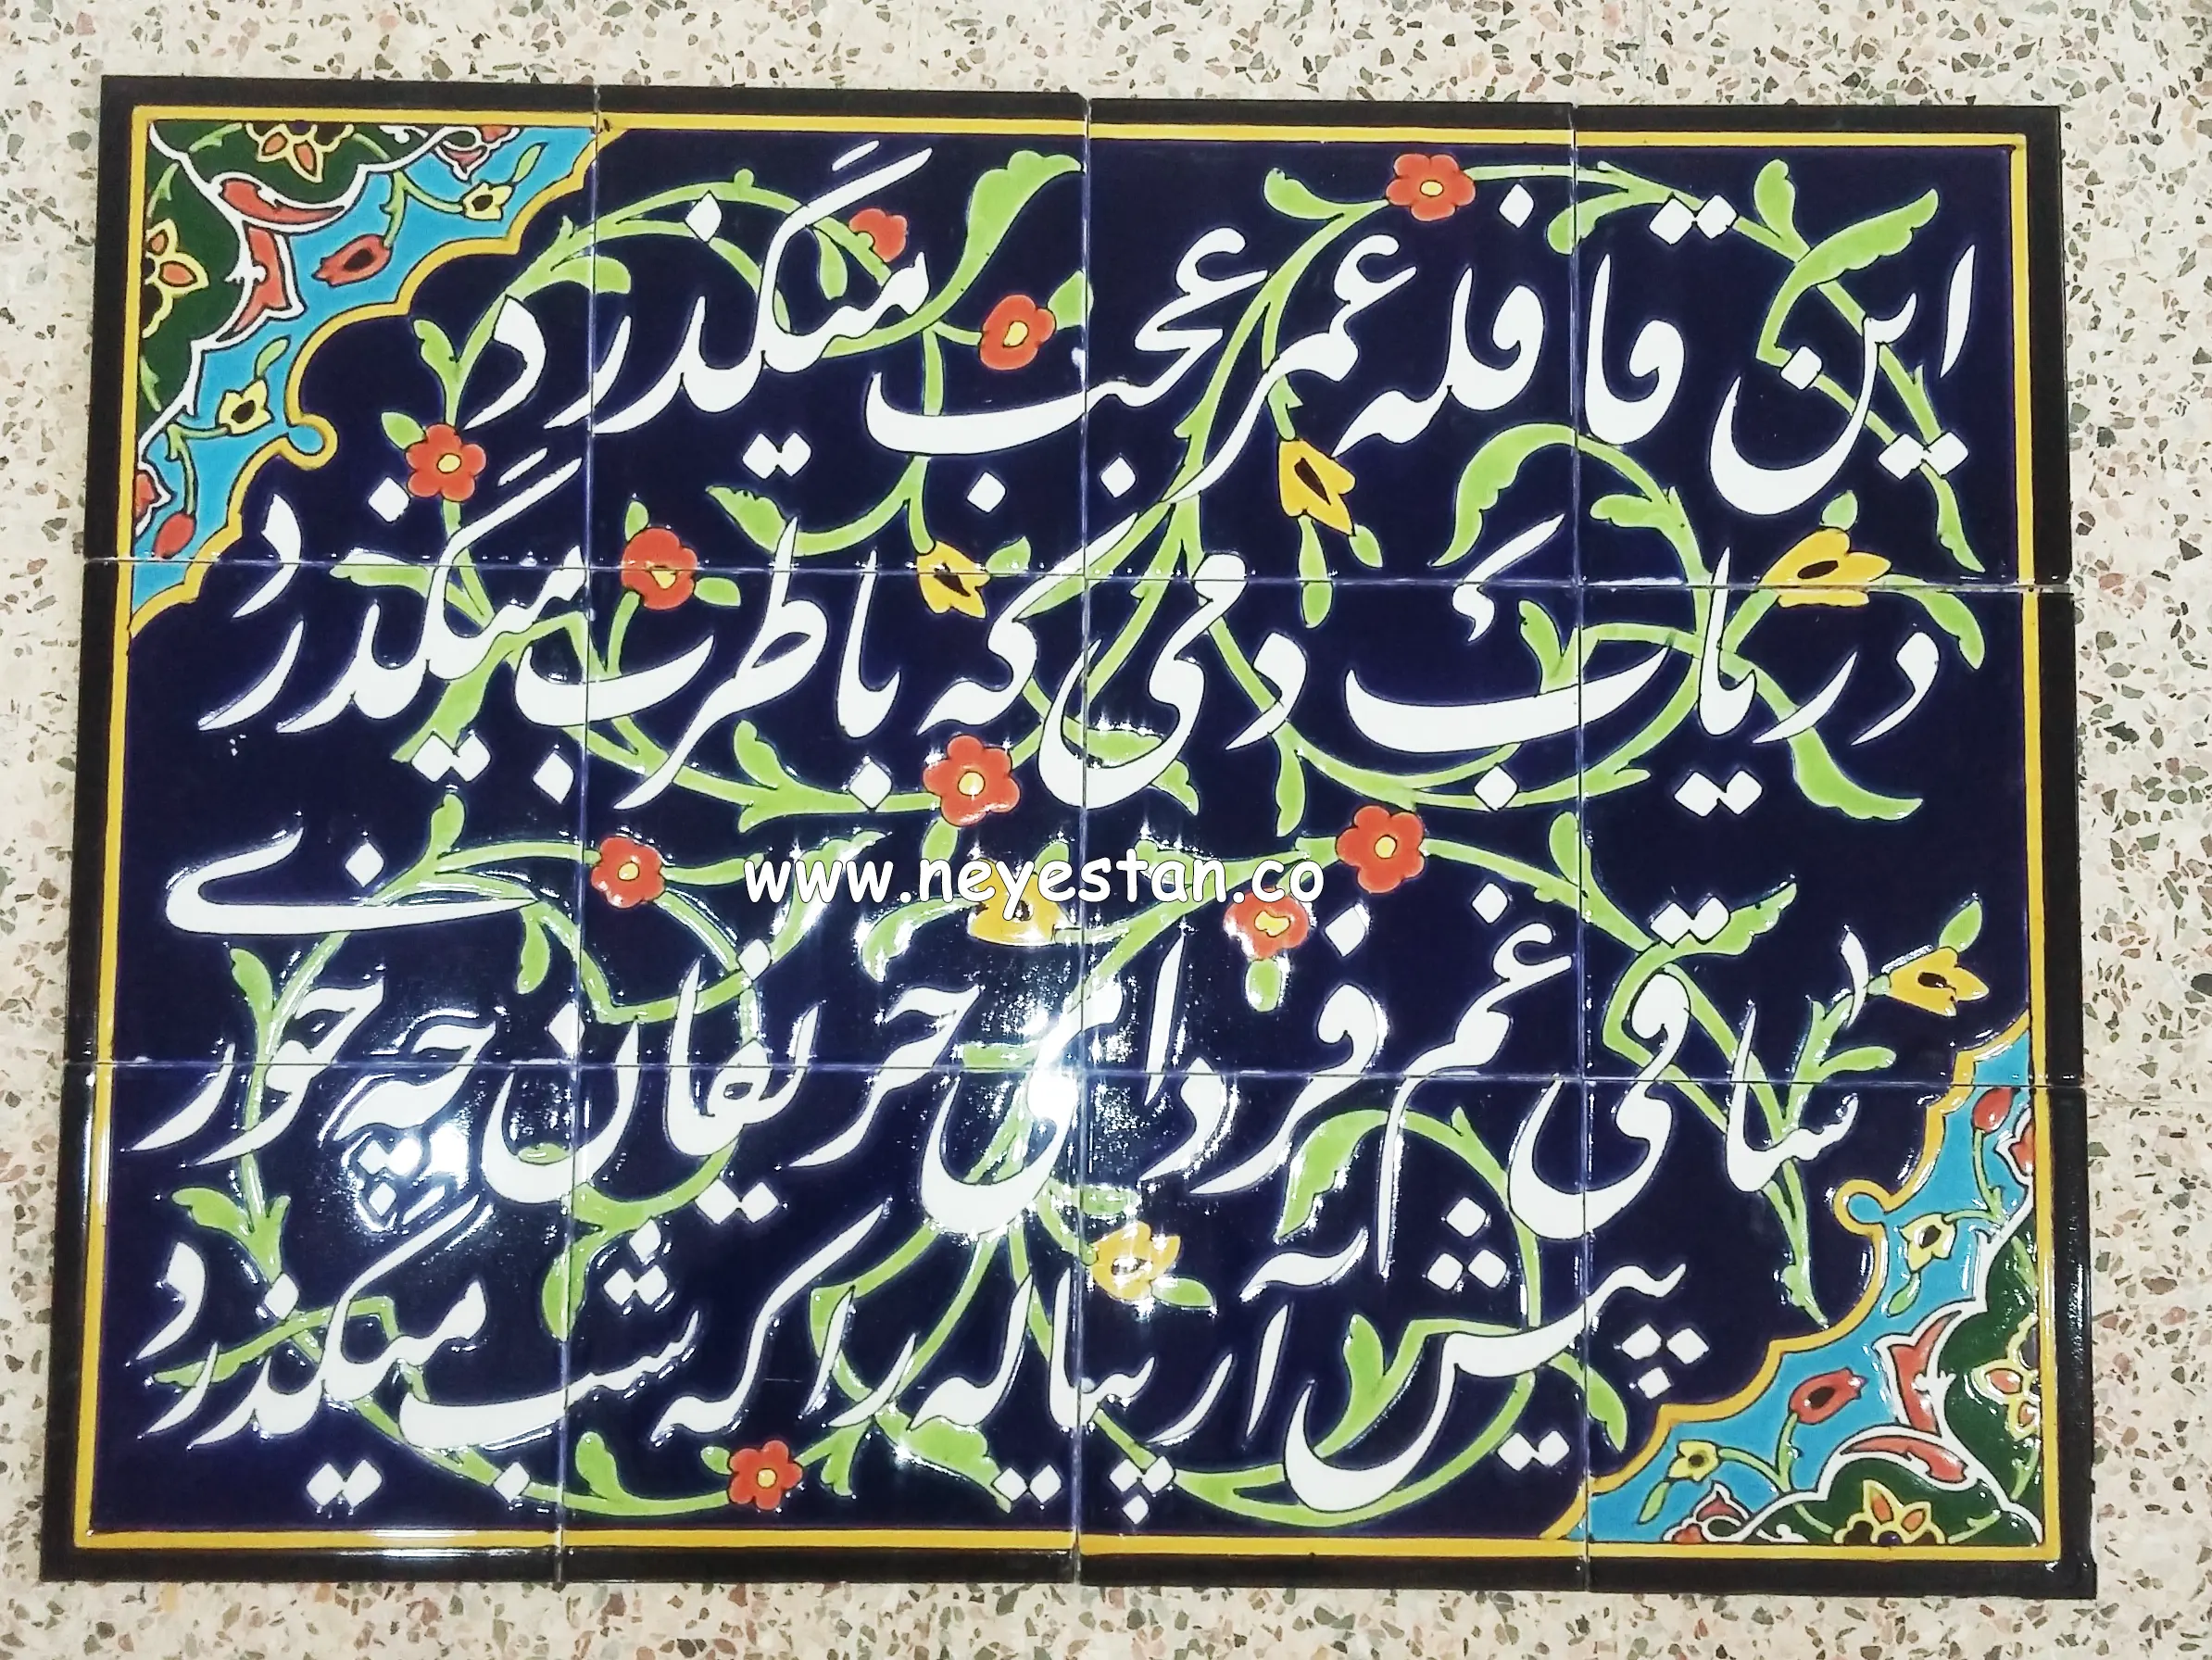 این قافله عمر عجب میگذرد
دریابْ دمی که با طرب میگذرد
www.neyestan.co
ساقی غم فردای حریفان چه خوری
پیش آر پیاله را که شب میگذرد